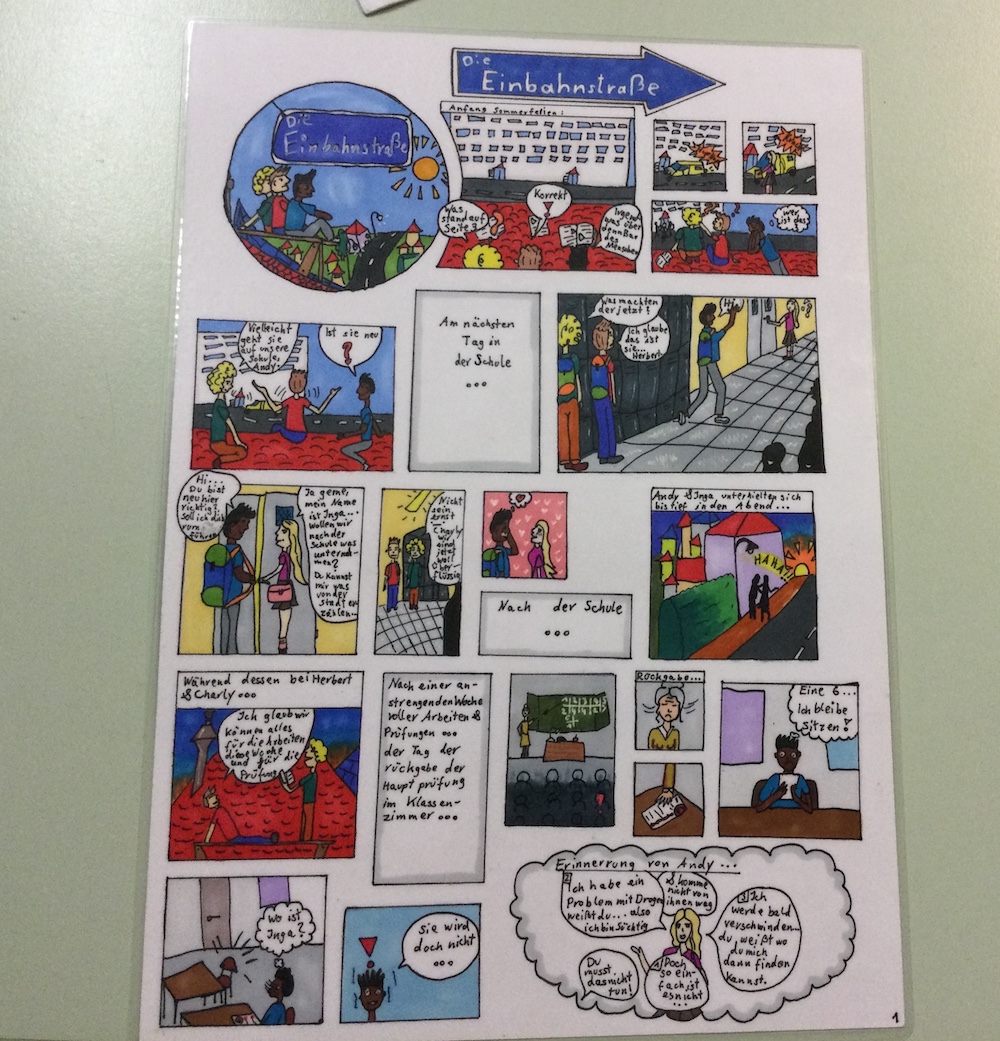 Die
Einbahnstraße
Die
Einbahnstraße
Anfang Sommerferien:
Was
stand auf
Seite 9
Korrekt
Irgend
was über
denn Bau
des
Menschen
6
wer
ist das?
Vielleicht
geht sie
auf unsere
Schule,
Andy.
Ist sie neu
?
Am nächsten
Tag in
der Schule
...
Was machten
der jetzt?
Ich glaube
das ist
sie...
Herbert
Hi!
?
Hi...
Du bist
neu hier
richtig?
soll ich dich
rum
führen
Ja gerne,
mein Name
ist Inga...
wollen wir
nach der
Schule was
unterneh-
men?
Du kannst
mir was
von der
Stadt er-
zählen...
Nicht
sein
ernst
Charly
wir
sind
jetzt
woll
über-
flüssig
Andy & Inga unterhielten sich
bis tief in den Abend...
HAHA!!!
Nach der Schule
...
Während dessen bei Herbert
& Charly ...
Ich glaub wir
können alles
für die Arbeiten
diese Woche
und für die
Prüfung
Nach einer an-
strengenden Woche
voller Arbeiten &
Prüfungen ...
der Tag der
rückgabe der
Haupt prüfung
im Klassen-
zimmer ...
Rückgabe...
Eine 6...
Ich bleibe
Sitzen!
wo ist
Inga?
Sie wird
doch nicht
...
Erinnerrung von Andy ...
2
Ich habe ein
Problem mit Drogen
weißt du... also
ich bin Süchtig
& komme
nicht von
ihnen weg
3 Ich
werde bald
verschwinden...
du weißt wo
du mich
dann finden
kannst.
Du
musst
das nicht
tun!
Doch
so ein-
fach ist
es nicht
...
1